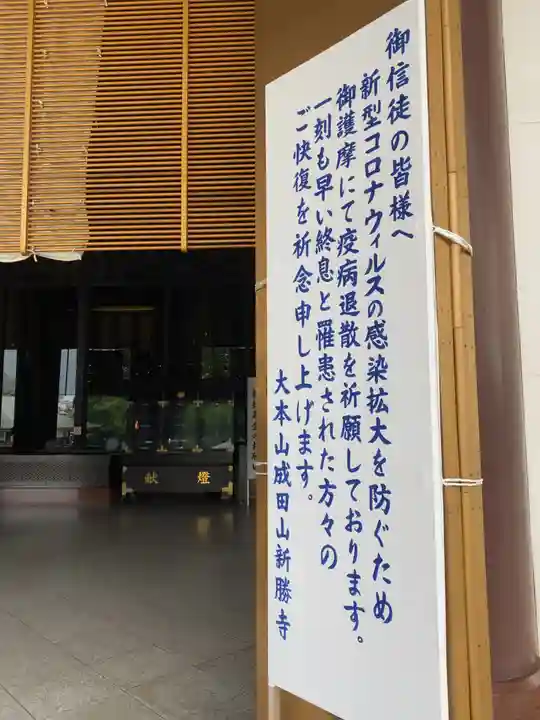 御信徒の皆様へ
新型コロナウィルスの感染拡大を防ぐため
御護摩にて疫病退散を祈願しております。
一刻も早い終息と罹患された方々の
ご快復を祈念申し上げます。
大本山成田山新勝寺
献燈